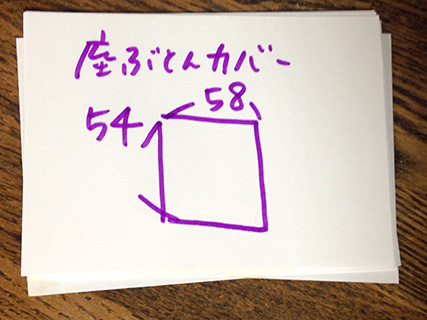 座ぶとんカバー
58
54